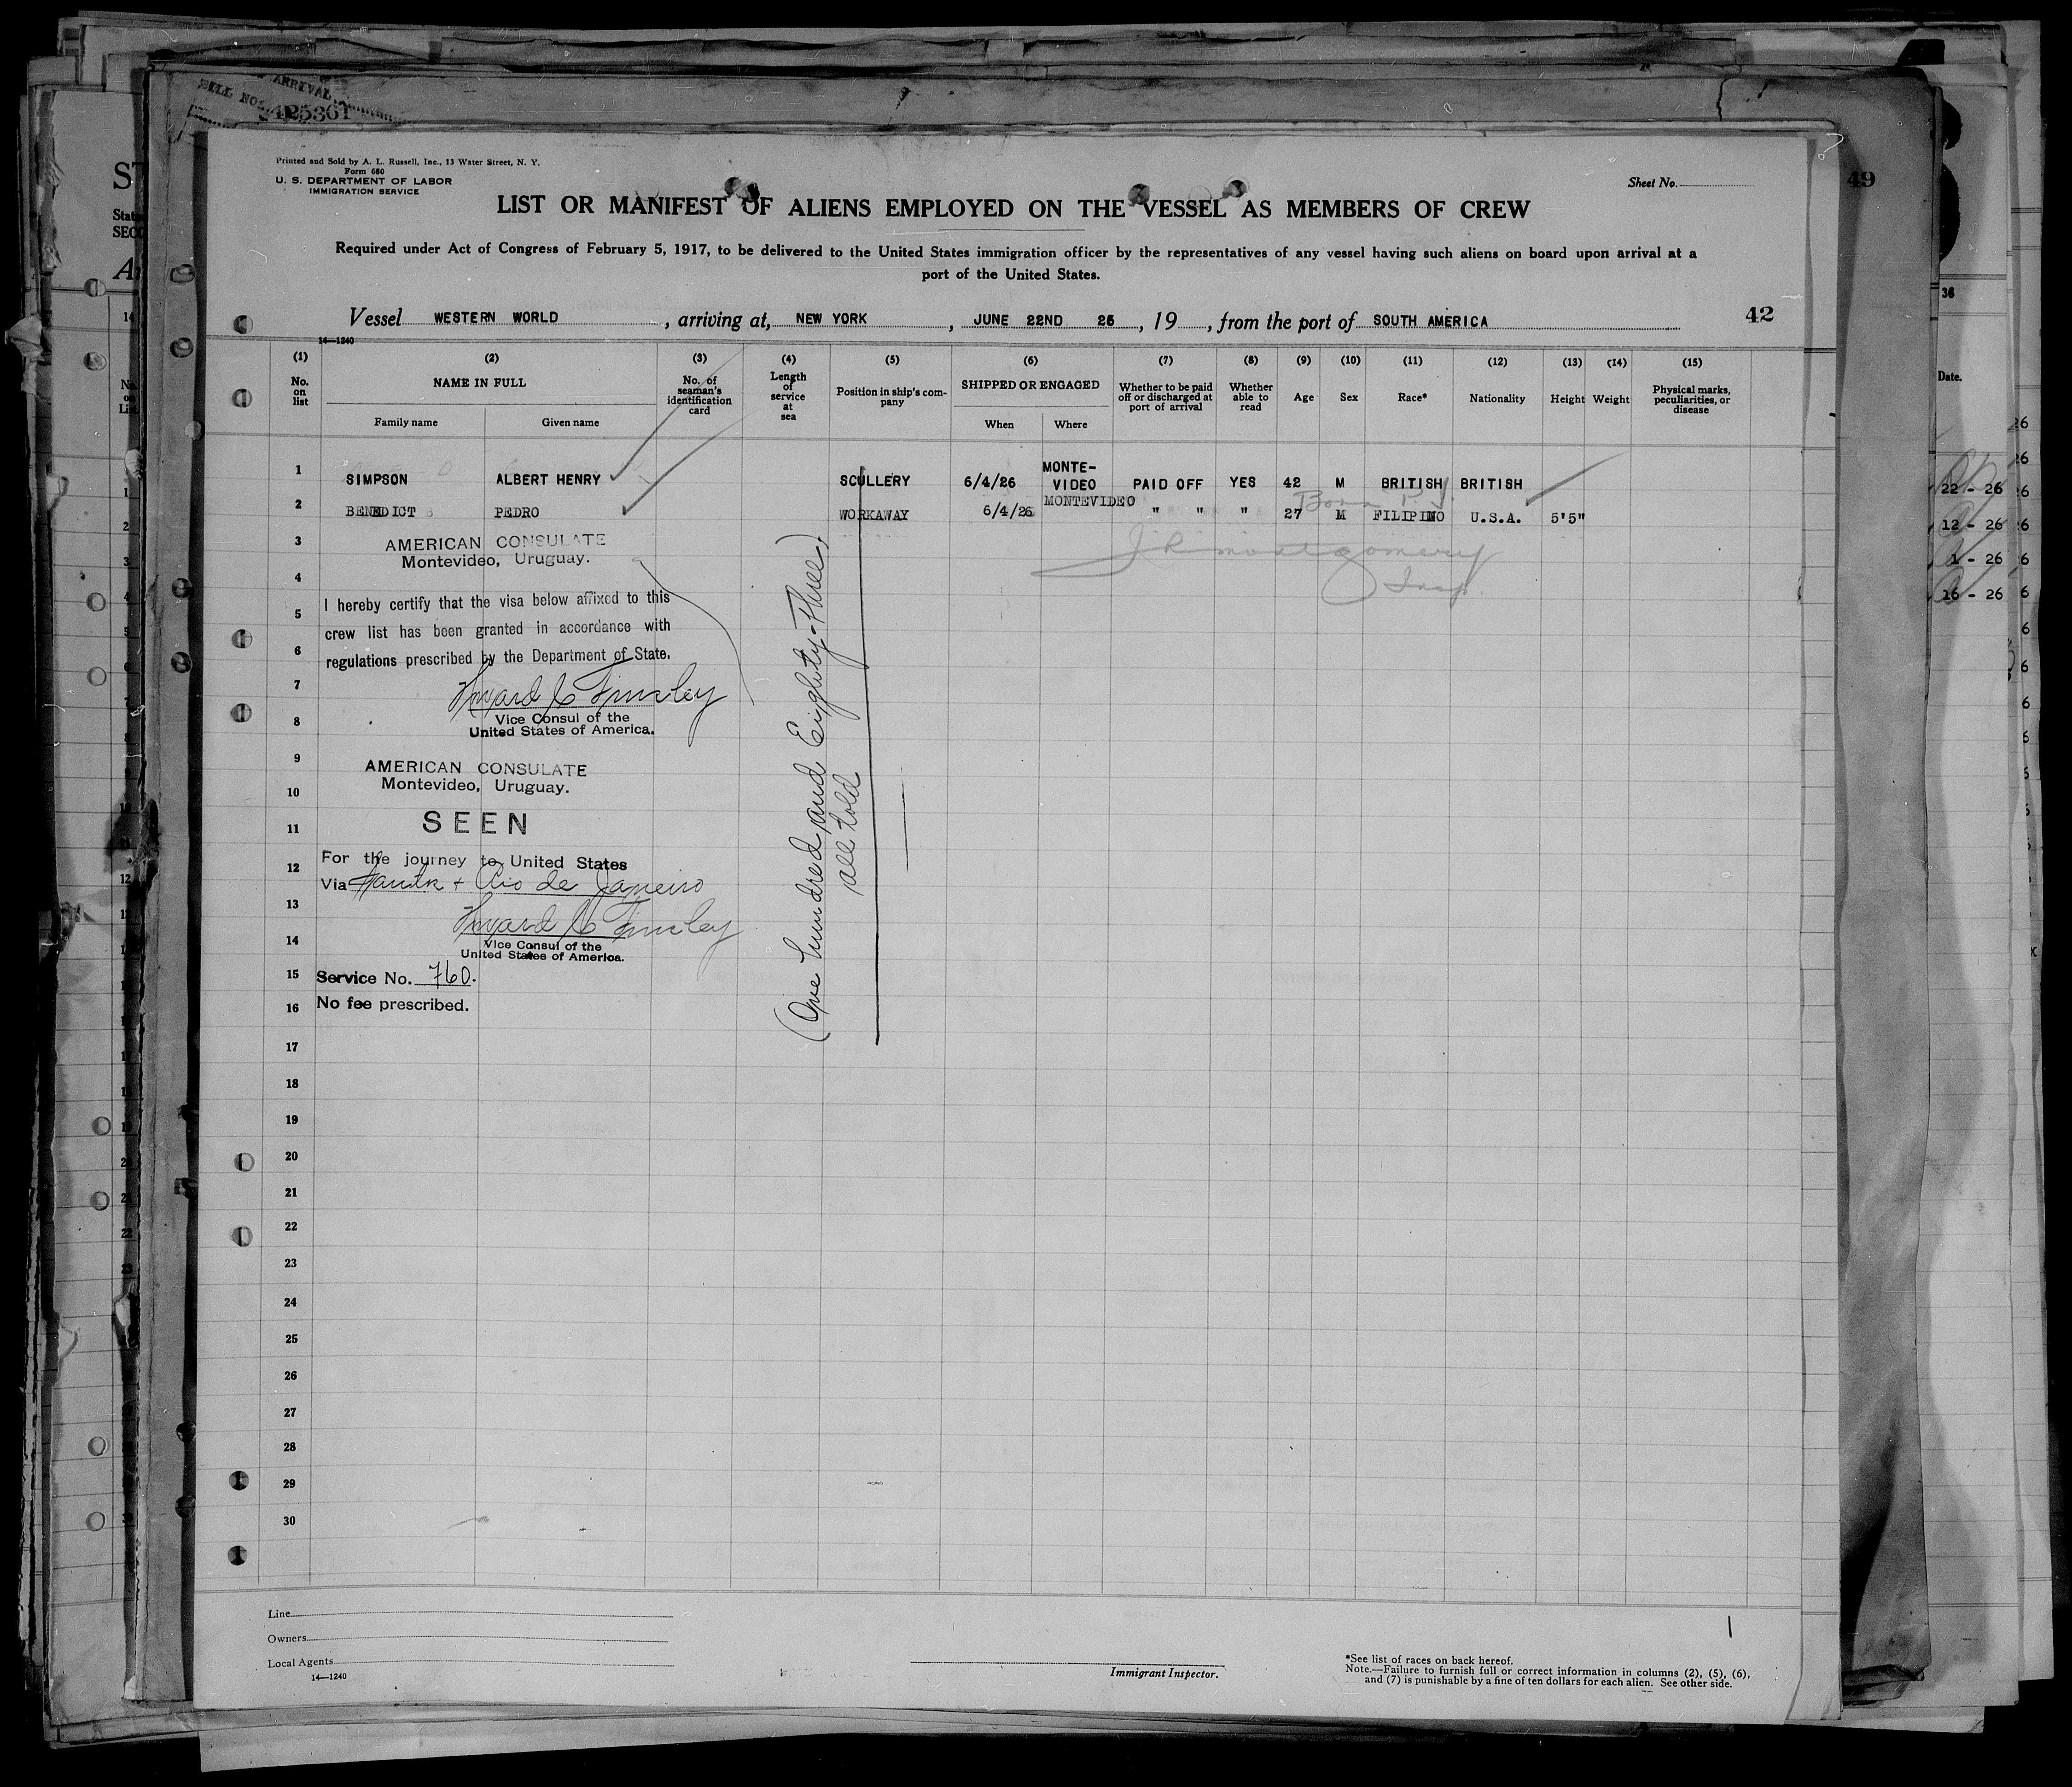 ARRIVAL
BILL NO.
425361
Printed and Sold by A. L. Russell, Inc., 13 Water Street, N. Y.
Form 680
U. S. DEPARTMENT OF LABOR
IMMIGRATION SERVICE
Sheet No.
49
LIST OR MANIFEST OF ALIENS EMPLOYED ON THE VESSEL AS MEMBERS OF CREW
Required under Act of Congress of February 5, 1917, to be delivered to the United States immigration officer by the representatives of any vessel having such aliens on board upon arrival at a
port of the United States.
Vessel WESTERN WORLD, arriving at, NEW YORK, JUNE 22ND 26, 19, from the port of SOUTH AMERICA
42
14—1240
(1) No. on list
(2) NAME IN FULL
Family name Given name
(3) No. of seaman's identification card
(4) Length of service at sea
(5) Position in ship's company
(6) SHIPPED OR ENGAGED
When Where
(7) Whether to be paid off or discharged at port of arrival
(8) Whether able to read
(9) Age
(10) Sex
(11) Race*
(12) Nationality
(13) Height
(14) Weight
(15) Physical marks, peculiarities, or disease
1 SIMPSON ALBERT HENRY SCULLERY 6/4/26 MONTE-VIDEO PAID OFF YES 42 M BRITISH BRITISH
Born P.I.
2 BENEDICT PEDRO WORKAWAY 6/4/26 MONTEVIDEO " " " 27 M FILIPINO U.S.A. 5'5"
J R Montgomery
Insp.
3
4
5
6
7
8
9
10
11
12
13
14
15
16
17
18
19
20
21
22
23
24
25
26
27
28
29
30
AMERICAN CONSULATE
Montevideo, Uruguay.
I hereby certify that the visa below affixed to this
crew list has been granted in accordance with
regulations prescribed by the Department of State.
Vice Consul of the
United States of America.
AMERICAN CONSULATE
Montevideo, Uruguay.
SEEN
For the journey to United States
Via Santos + Rio de Janeiro
Vice Consul of the
United States of America.
Service No. 760.
No fee prescribed.
(One hundred and Eighty-Three)
all told
Line
Owners
Local Agents
14—1240
Immigrant Inspector.
*See list of races on back hereof.
Note.—Failure to furnish full or correct information in columns (2), (5), (6),
and (7) is punishable by a fine of ten dollars for each alien. See other side.
36
Date.
22 - 26
12 - 26
1 - 26
16 - 26